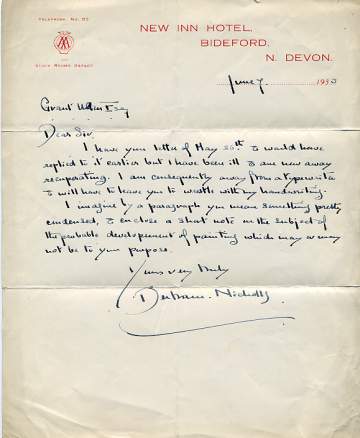 TELEPHONE No. 85
NEW INN HOTEL,
BIDEFORD,
N. DEVON.
AA
AND
June 7 1933
Grant Esq
Dear Sir.
I have your letter of May 30th & would have
replied to it earlier but I have been ill & am now away
recuperating. I am consequently away from a typewriter
& will have to leave you to wrestle with my handwriting.
I imagine by a paragraph you mean something pretty
condensed, & enclose a short note on the subject of
the probable development of painting which may or may
not be to your purpose.
Yours very truly
Bertram Nicholls.